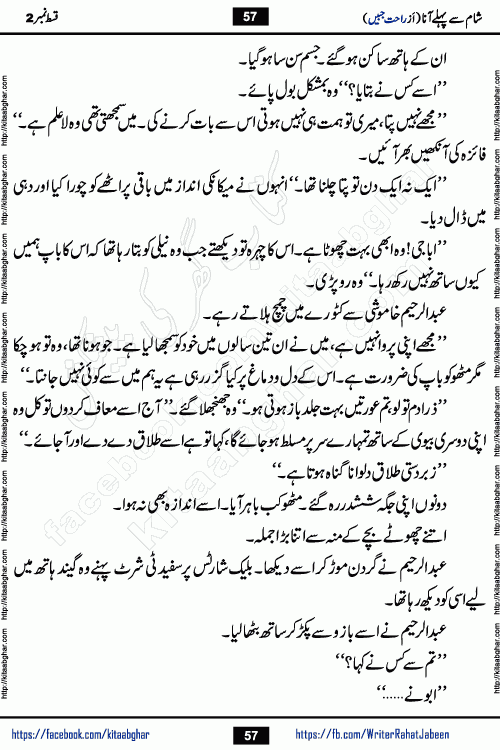 شام سے پہلے آنا (از راحت جبیں)
57
قسط نمبر 2
ان کے ہاتھ ساکن ہو گئے۔ جسم سن سا ہو گیا۔
’’اسے کس نے بتایا؟‘‘ وہ بمشکل بول پائے۔
’’مجھے نہیں پتا، میری تو ہمت ہی نہیں ہوتی اس سے بات کرنے کی۔ میں سمجھتی تھی وہ لاعلم ہے۔‘‘
فائزہ کی آنکھیں بھر آئیں۔
’’ایک نہ ایک دن تو پتا چلنا تھا۔‘‘ انہوں نے میکانکی انداز میں باقی پراٹھے کو چورا کیا اور دہی
میں ڈال دیا۔
’’ابا جی! وہ ابھی بہت چھوٹا ہے۔ اس کا چہرہ تو دیکھتے جب وہ نیلی کو بتا رہا تھا کہ اس کا باپ ہمیں
کیوں ساتھ نہیں رکھ رہا۔‘‘ وہ رو پڑی۔
عبدالرحیم خاموشی سے کٹورے میں چمچ ہلاتے رہے۔
’’مجھے اپنی پروا نہیں ہے، میں نے ان تین سالوں میں خود کو سمجھا لیا ہے۔ جو ہونا تھا، وہ تو ہو چکا
مگر مٹھو کو باپ کی ضرورت ہے۔ اس کے دل و دماغ پر کیا گزر رہی ہے یہ ہم میں سے کوئی نہیں جانتا۔‘‘
’’ذرا دم تو لو، تم عورتیں بہت جلد باز ہوتی ہو۔‘‘ وہ جھنجھلا گئے۔ ’’آج اسے معاف کر دوں تو کل وہ
اپنی دوسری بیوی کے ساتھ تمہارے سر پر مسلط ہو جائے گا، کہا تو ہے اسے طلاق دے دے اور آ جائے۔‘‘
’’زبردستی طلاق دلوانا گناہ ہوتا ہے۔‘‘
دونوں اپنی جگہ ششدر رہ گئے۔ مٹھو کب باہر آیا۔ اسے اندازہ بھی نہ ہوا۔
اتنے چھوٹے بچے کے منہ سے اتنا بڑا جملہ۔
عبدالرحیم نے گردن موڑ کر اسے دیکھا۔ بلیک شارٹس پر سفید ٹی شرٹ پہنے وہ گیند ہاتھ میں
لیے اسی کو دیکھ رہا تھا۔
عبدالرحیم نے اسے بازو سے پکڑ کر ساتھ بٹھا لیا۔
’’تم سے کس نے کہا؟‘‘
’’ابو نے......‘‘
http://kitaabghar.com http://kitaabghar.com http://kitaabghar.com http://kitaabghar.com http://kitaabghar.com http://kitaabghar.com http://kitaabghar.com http://kitaabghar.com
http://kitaabghar.com http://kitaabghar.com http://kitaabghar.com http://kitaabghar.com http://kitaabghar.com http://kitaabghar.com http://kitaabghar.com http://kitaabghar.com
https://facebook.com/kitaabghar
57
https://fb.com/WriterRahatJabeen